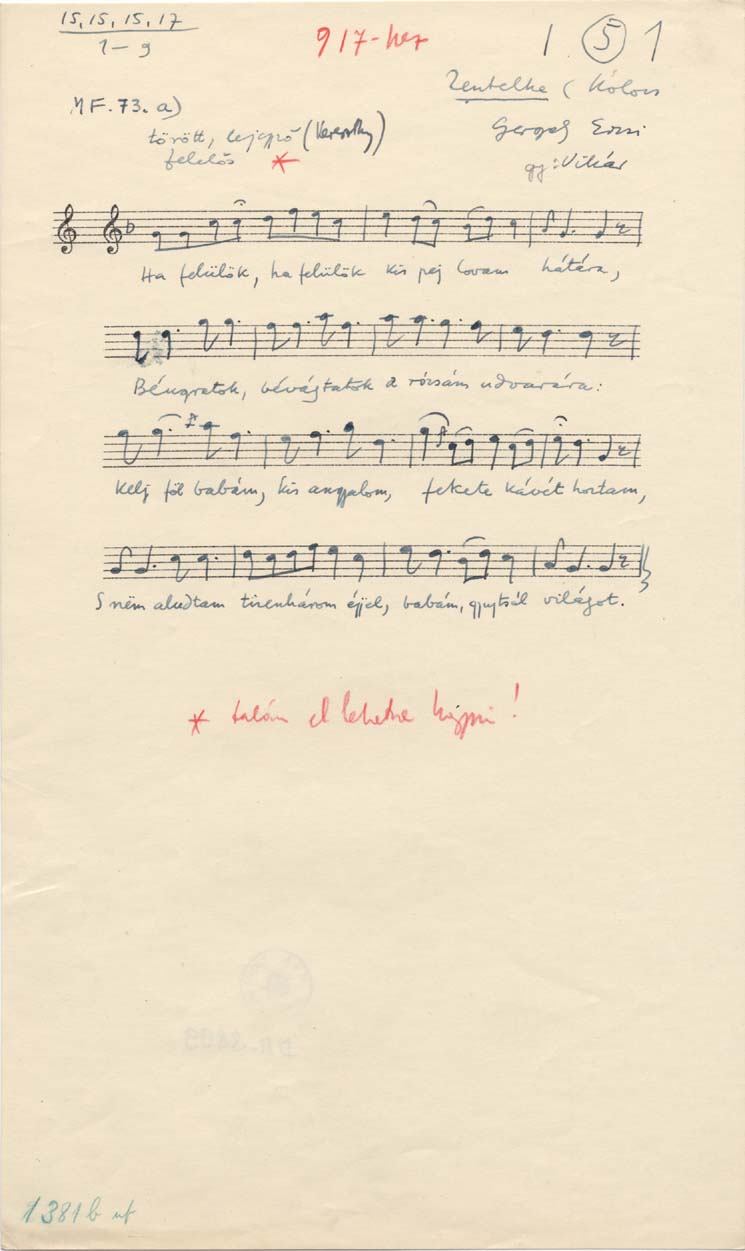 15, 15, 15, 17
1 – 9
917-hez
1 5 1
Zentelke ( Kolozs
MF. 73. a)
Gergely Erzsi
törött,
felelős *
gy: Vikár
Ha felülök, ha felülök kis pej lovam hátára,
Béugratok, bévágtatok a rózsám udvarára:
Kelj föl babám, kis angyalom, fekete kávét hoztam,
S nëm aludtam tizenhárom éjjel, babám, gyujtsál világot.
* talán el lehetne
1381 b